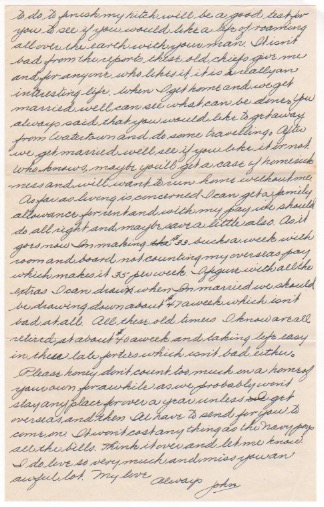 to do, to finish my hitch will be a good test for
you to see if you would like a life of roaming
all over the earth with your man. It isn't
bad from the reports these old chiefs give me
and for anyone who likes it, it is a really an
interesting life. when I get home and we get
married we'll can see what can be done. You
always said that you would like to get away
from Watertown and do some travelling. After
we get married we'll see if you like it or not
Who knows, maybe you'll get a case of home sick
ness and will want to run home without me.
As far as living is concerned I can get a family
allowance for rent and with my pay we should
do all right and maybe save a little also. As it
goes now I'm making $33. bucks a week with
room and board not counting my overseas pay
which makes it 35 per week. I figure with all the
extras I can draw, when I'm married we should
be drawing down about $47 a week which isn't
bad at all. All these old timers I know are all
retired at about $45 a week and taking life easy
in their late forties which isn't bad either.
Please honey don't count too much on a home of
your own for awhile as we probably won't
stay any place for over a year unless I get
overseas, and then I'll have to send for you to
come on. It won't cost any thing as the Navy pays
all the bills. Think it over and let me know
I do love so very much and miss you an
awful lot. My love
Always John